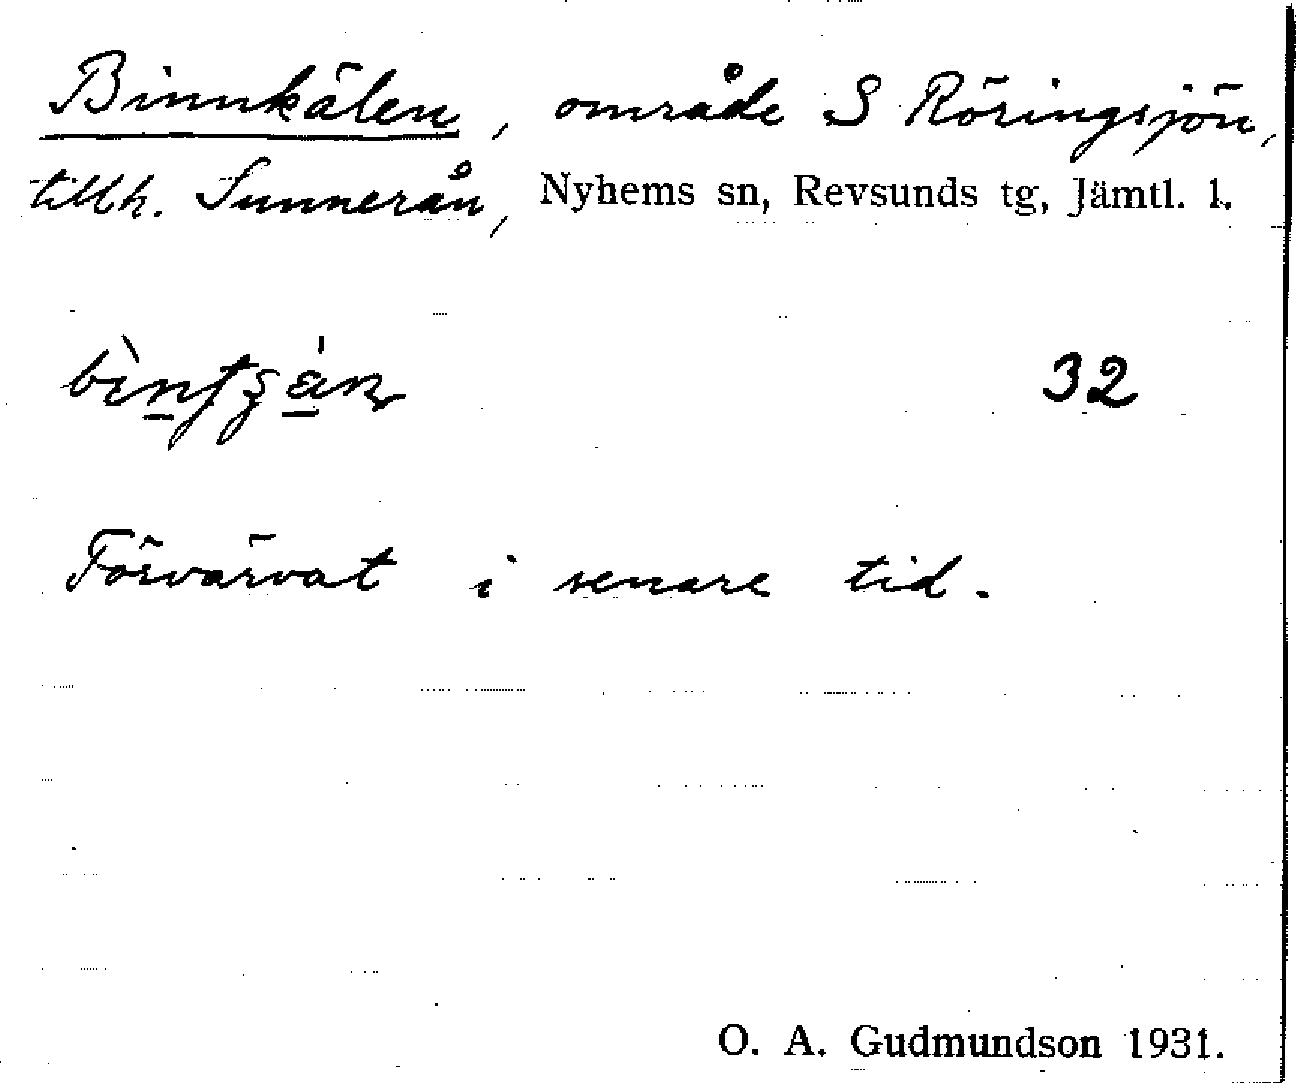 Binnkälen, område S Röringsjön,
tillh. Sunnerån, Nyhems sn, Revsunds tg, Jämtl. l.
32
Förvärvat i senare tid.
O. A. Gudmundson 1931.